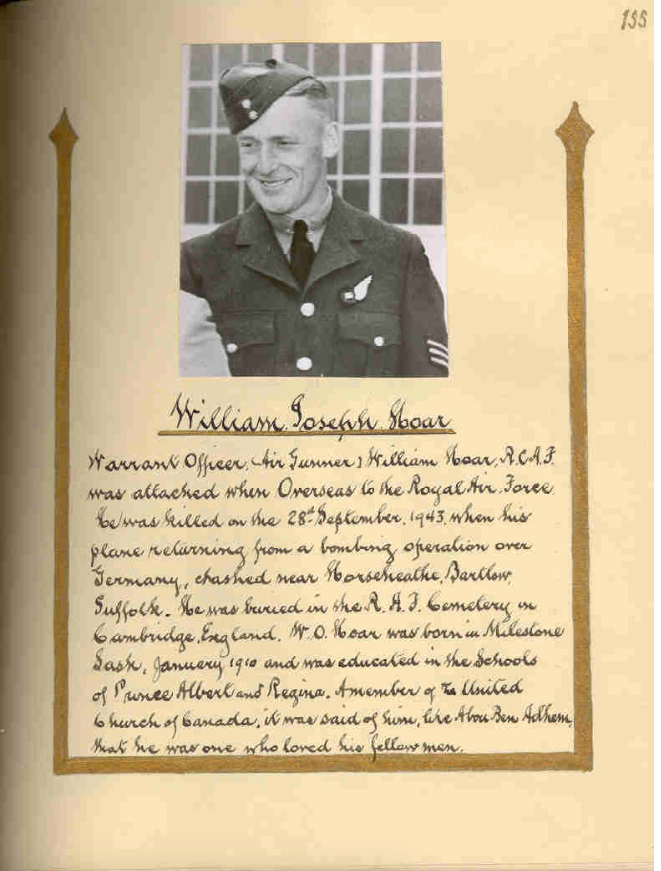 155
William Joseph Hoar
Warrant Officer, (Air Gunner) William Hoar, R.C.A.F.
was attached when Overseas to the Royal Air Force.
He was killed on the 28th September, 1943, when his
plane returning from a bombing operation over
Germany, chashed near Horseheathe, Bartlow,
Suffolk. He was buried in the R. A. F. Cemetery in
Cambridge, England. W. O. Hoar was born in Milestone
Sask, January 1910 and was educated in the Schools
of Prince Albert and Regina. A member of the United
Church of Canada, it was said of him, like Abou Ben Adhem,
that he was one who loved his fellow men.